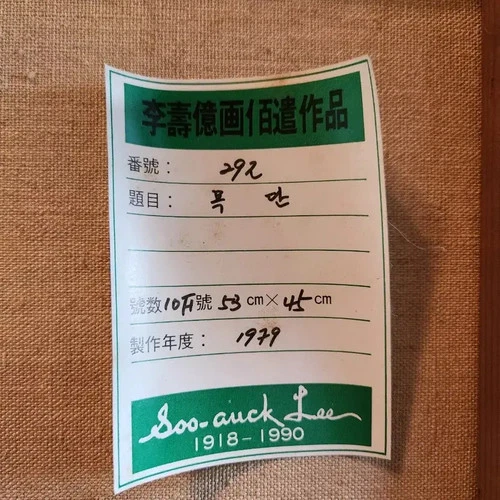 李壽億画伯遺作品
番號: 292
題目: 목단
號数 10F號 53cm×45cm
製作年度: 1979
Soo-auck Lee
1918-1990